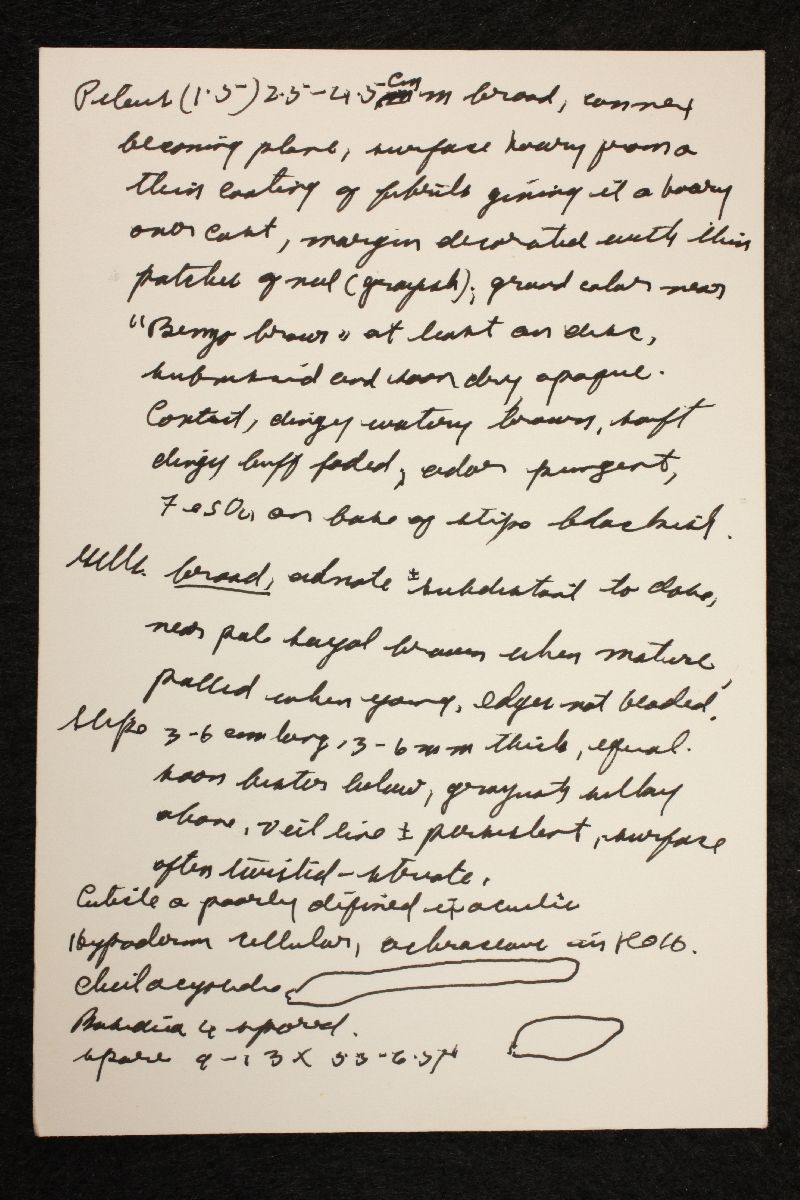 Pileus (1.5-) 2.5-4.5 cm broad, convex
becoming plane, surface hoary from a
thin coating of fibrils giving it a hoary
over cast, margin decorated with thin
patches of veil (grayish); ground color near
"Benzo brown" at least on disc,
subviscid and soon dry, opaque.
Context, dingy watery brown, soft
dingy buff faded, odor pungent,
FeSO4 on base of stipe blackish.
Gills broad, adnate ± subdistant to close,
near pale sayal brown when mature,
pallid when young, edges not beaded.
Stipe 3-6 cm long, 3-6 mm thick, equal.
soon bister below, grayish silky
above, veil line ± persistent, surface
often twisted-striate.
Cuticle a poorly defined ixocutis
Hypoderm cellular, ochraceous in KOH.
Cheilocystidia
Basidia 4 spored.
spore 9-13 X 5.5-6.5µ